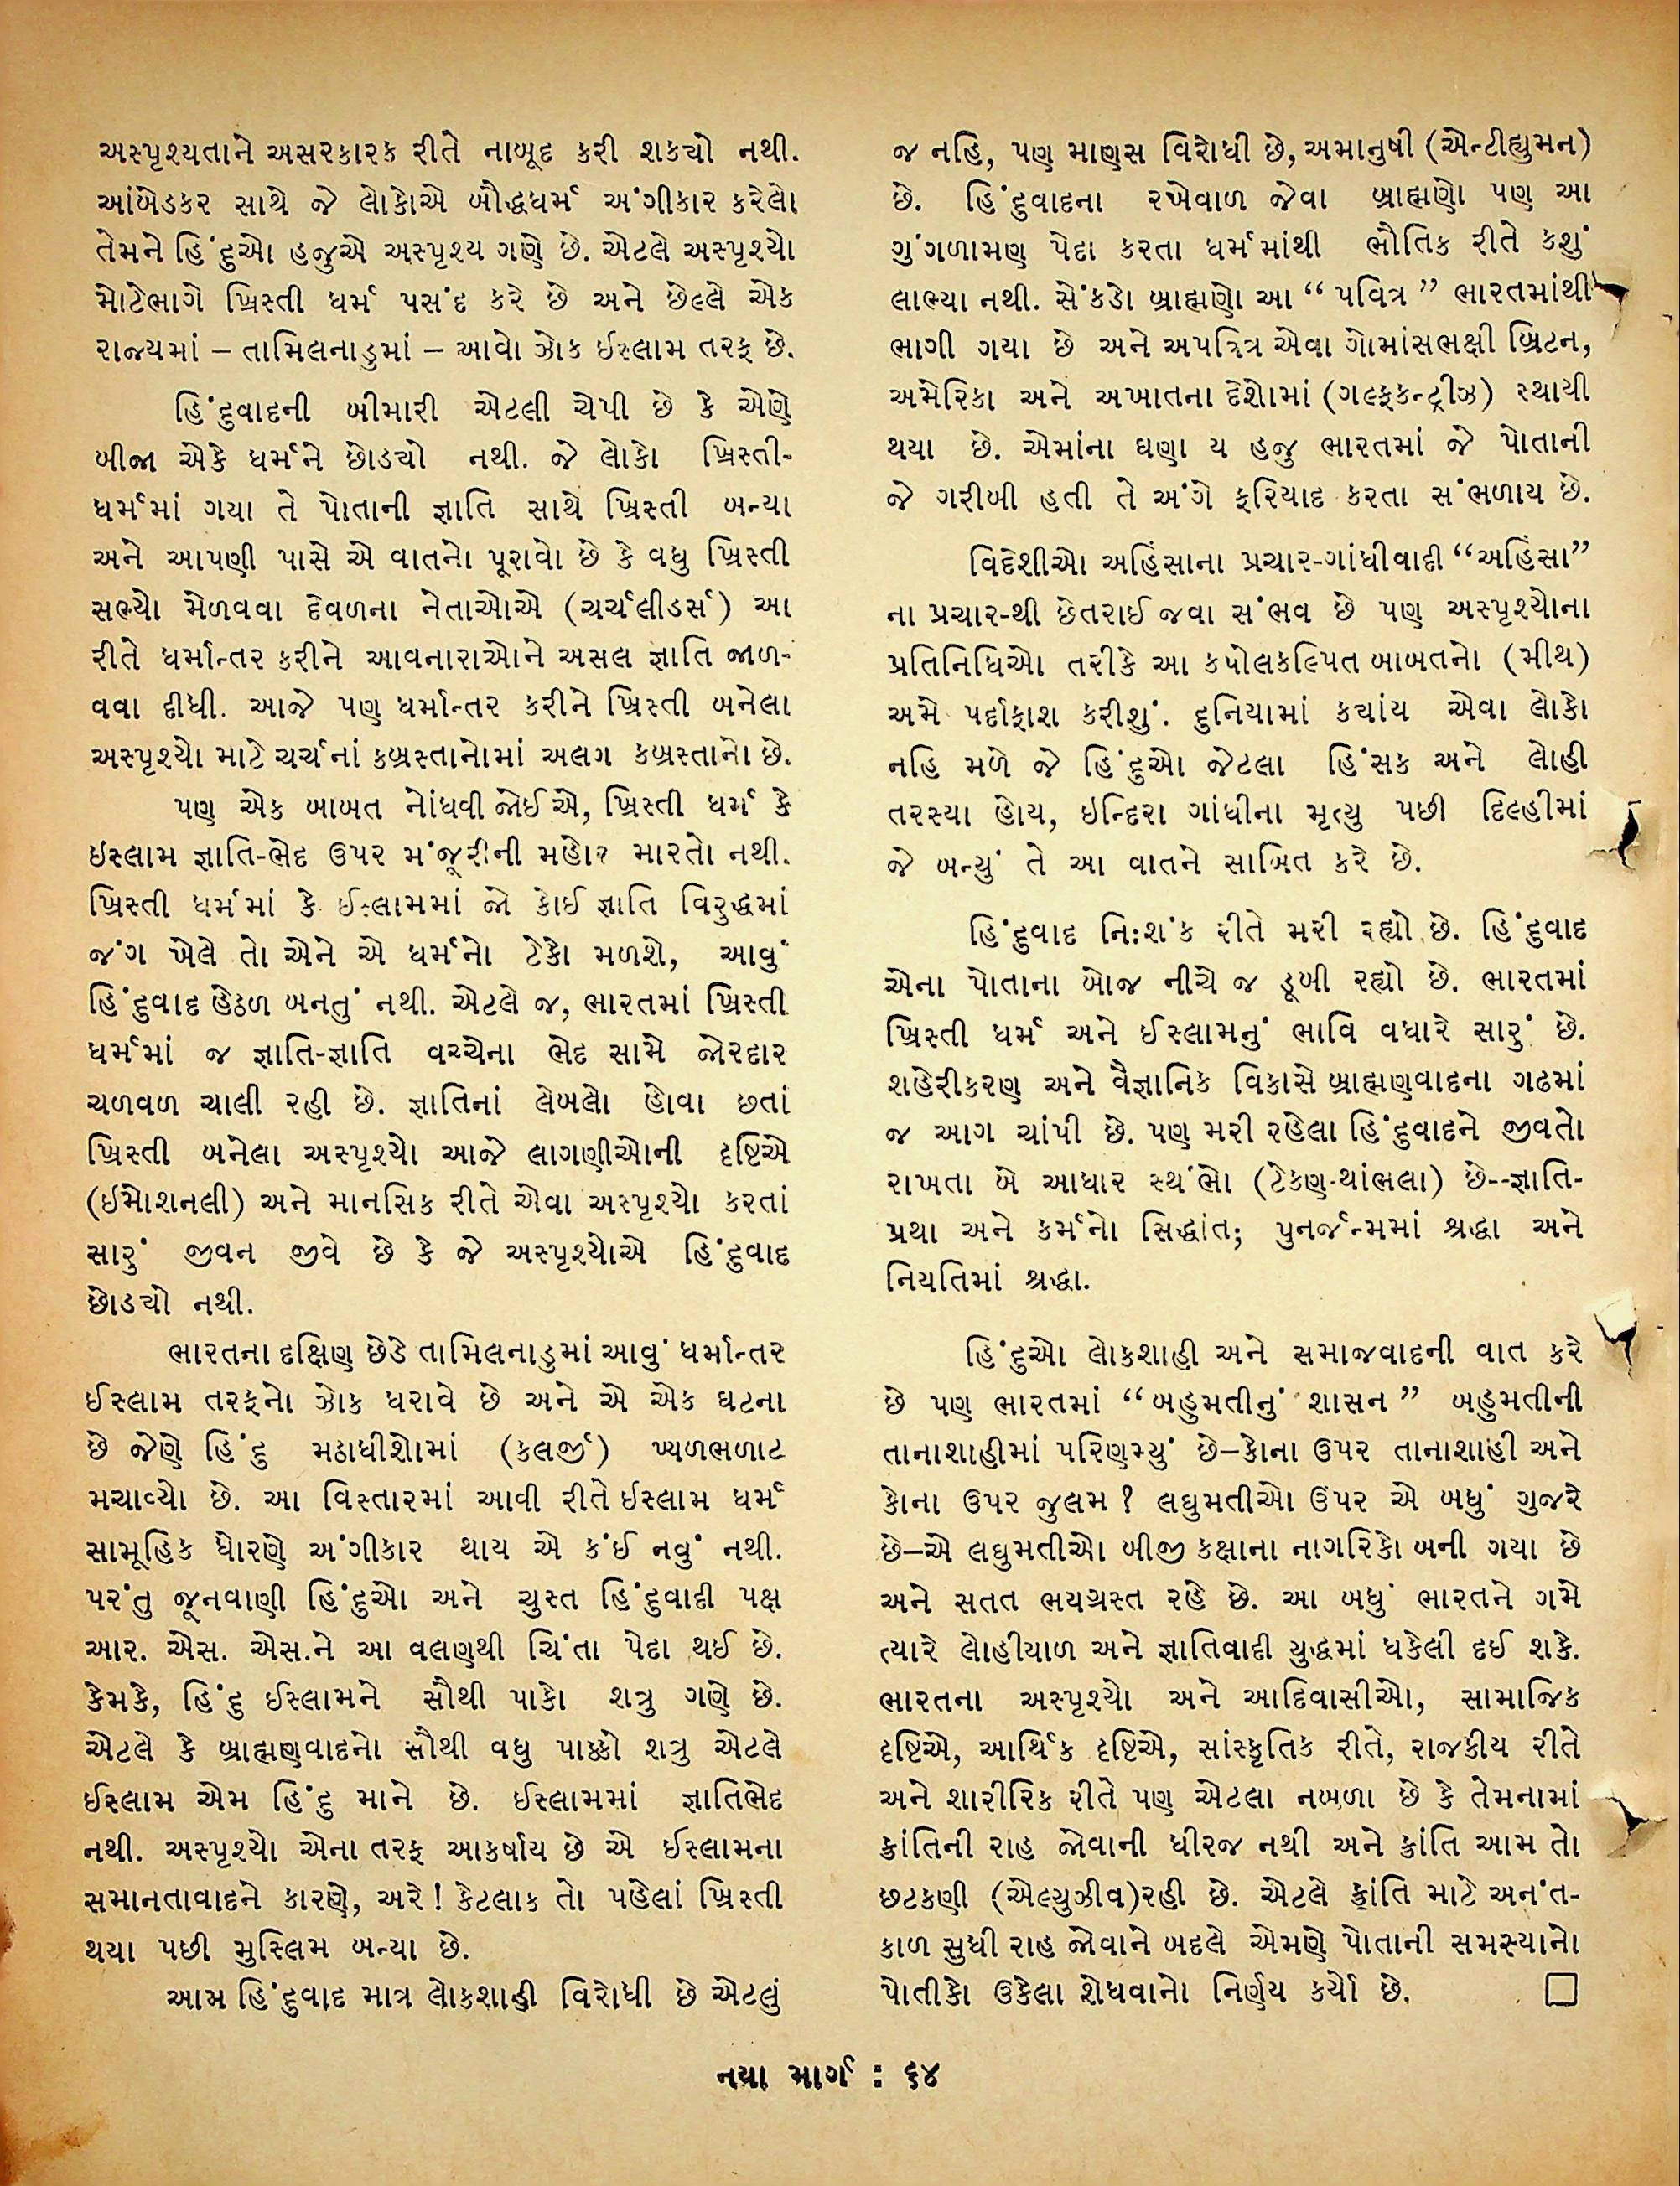 અસ્પૃશ્યતાને અસરકારક રીતે નાબૂદ કરી શક્યો નથી.
આંબેડકર સાથે જે લોકોએ બૌદ્ધધર્મ અંગીકાર કરેલો
તેમને હિંદુઓ હજુએ અસ્પૃશ્ય ગણે છે. એટલે અસ્પૃશ્યો
મોટેભાગે ખ્રિસ્તી ધર્મ પસંદ કરે છે અને છેલ્લે એક
રાજ્યમાં – તામિલનાડુમાં – આવો ઝોક ઈસ્લામ તરફ છે.
હિંદુવાદની બીમારી એટલી ચેપી છે કે એણે
બીજા એકે ધર્મને છોડ્યો નથી. જે લોકો ખ્રિસ્તી-
ધર્મમાં ગયા તે પોતાની જ્ઞાતિ સાથે ખ્રિસ્તી બન્યા
અને આપણી પાસે એ વાતનો પૂરાવો છે કે વધુ ખ્રિસ્તી
સભ્યો મેળવવા દેવળના નેતાઓએ (ચર્ચલીડર્સ) આ
રીતે ધર્માન્તર કરીને આવનારાઓને અસલ જ્ઞાતિ જાળ-
વવા દીધી. આજે પણ ધર્માન્તર કરીને ખ્રિસ્તી બનેલા
અસ્પૃશ્યો માટે ચર્ચનાં કબ્રસ્તાનોમાં અલગ કબ્રસ્તાનો છે.
પણ એક બાબત નોંધવી જોઈએ, ખ્રિસ્તી ધર્મ કે
ઇસ્લામ જ્ઞાતિ-ભેદ ઉપર મંજૂરીની મહોર મારતો નથી.
ખ્રિસ્તી ધર્મમાં કે ઈસ્લામમાં જો કોઈ જ્ઞાતિ વિરુદ્ધમાં
જંગ ખેલે તો એને એ ધર્મનો ટેકો મળશે, આવું
હિંદુવાદ હેઠળ બનતું નથી. એટલે જ, ભારતમાં ખ્રિસ્તી
ધર્મમાં જ જ્ઞાતિ-જ્ઞાતિ વચ્ચેના ભેદ સામે જોરદાર
ચળવળ ચાલી રહી છે. જ્ઞાતિનાં લેબલો હોવા છતાં
ખ્રિસ્તી બનેલા અસ્પૃશ્યો આજે લાગણીઓની દૃષ્ટિએ
(ઇમોશનલી) અને માનસિક રીતે એવા અસ્પૃશ્યો કરતાં
સારું જીવન જીવે છે કે જે અસ્પૃશ્યોએ હિંદુવાદ
છોડ્યો નથી.
ભારતના દક્ષિણ છેડે તામિલનાડુમાં આવું ધર્માન્તર
ઈસ્લામ તરફનો ઝોક ધરાવે છે અને એ એક ઘટના
છે જેણે હિંદુ મઠાધીશોમાં (કલર્જી) ખળભળાટ
મચાવ્યો છે. આ વિસ્તારમાં આવી રીતે ઈસ્લામ ધર્મ
સામૂહિક ધોરણે અંગીકાર થાય એ કંઈ નવું નથી.
પરંતુ જૂનવાણી હિંદુઓ અને ચુસ્ત હિંદુવાદી પક્ષ
આર. એસ. એસ.ને આ વલણથી ચિંતા પેદા થઈ છે.
કેમકે, હિંદુ ઈસ્લામને સૌથી પાકો શત્રુ ગણે છે.
એટલે કે બ્રાહ્મણવાદનો સૌથી વધુ પાક્કો શત્રુ એટલે
ઈસ્લામ એમ હિંદુ માને છે. ઈસ્લામમાં જ્ઞાતિભેદ
નથી. અસ્પૃશ્યો એના તરફ આકર્ષાય છે એ ઈસ્લામના
સમાનતાવાદને કારણે, અરે! કેટલાક તો પહેલાં ખ્રિસ્તી
થયા પછી મુસ્લિમ બન્યા છે.
આમ હિંદુવાદ માત્ર લોકશાહી વિરોધી છે એટલું
જ નહિ, પણ માણસ વિરોધી છે, અમાનુષી (એન્ટીહ્યુમન)
છે. હિંદુવાદના રખેવાળ જેવા બ્રાહ્મણો પણ આ
ગુંગળામણ પેદા કરતા ધર્મમાંથી ભૌતિક રીતે કશું
લાભ્યા નથી. સેંકડો બ્રાહ્મણો આ “પવિત્ર” ભારતમાંથી
ભાગી ગયા છે અને અપવિત્ર એવા ગોમાંસભક્ષી બ્રિટન,
અમેરિકા અને અખાતના દેશોમાં (ગલ્ફકન્ટ્રીઝ) સ્થાયી
થયા છે. એમાંના ઘણા ય હજુ ભારતમાં જે પોતાની
જે ગરીબી હતી તે અંગે ફરિયાદ કરતા સંભળાય છે.
વિદેશીઓ અહિંસાના પ્રચાર-ગાંધીવાદી “અહિંસા”
ના પ્રચાર-થી છેતરાઈ જવા સંભવ છે પણ અસ્પૃશ્યોના
પ્રતિનિધિઓ તરીકે આ કપોલકલ્પિત બાબતનો (મીથ)
અમે પર્દાફાશ કરીશું. દુનિયામાં ક્યાંય એવા લોકો
નહિ મળે જે હિંદુઓ જેટલા હિંસક અને લોહી
તરસ્યા હોય, ઇન્દિરા ગાંધીના મૃત્યુ પછી દિલ્હીમાં
જે બન્યું તે આ વાતને સાબિત કરે છે.
હિંદુવાદ નિઃશંક રીતે મરી રહ્યો છે. હિંદુવાદ
એના પોતાના બોજ નીચે જ ડૂબી રહ્યો છે. ભારતમાં
ખ્રિસ્તી ધર્મ અને ઈસ્લામનું ભાવિ વધારે સારું છે.
શહેરીકરણ અને વૈજ્ઞાનિક વિકાસે બ્રાહ્મણવાદના ગઢમાં
જ આગ ચાંપી છે. પણ મરી રહેલા હિંદુવાદને જીવતો
રાખતા બે આધાર સ્થંભો (ટેકણ-થાંભલા) છે--જ્ઞાતિ-
પ્રથા અને કર્મનો સિદ્ધાંત; પુનર્જન્મમાં શ્રદ્ધા અને
નિયતિમાં શ્રદ્ધા.
હિંદુઓ લોકશાહી અને સમાજવાદની વાત કરે
છે પણ ભારતમાં “બહુમતીનું શાસન” બહુમતીની
તાનાશાહીમાં પરિણમ્યું છે–કોના ઉપર તાનાશાહી અને
કોના ઉપર જુલમ? લઘુમતીઓ ઉપર એ બધું ગુજરે
છે–એ લઘુમતીઓ બીજી કક્ષાના નાગરિકો બની ગયા છે
અને સતત ભયગ્રસ્ત રહે છે. આ બધું ભારતને ગમે
ત્યારે લોહીયાળ અને જ્ઞાતિવાદી યુદ્ધમાં ધકેલી દઈ શકે.
ભારતના અસ્પૃશ્યો અને આદિવાસીઓ, સામાજિક
દૃષ્ટિએ, આર્થિક દૃષ્ટિએ, સાંસ્કૃતિક રીતે, રાજકીય રીતે
અને શારીરિક રીતે પણ એટલા નબળા છે કે તેમનામાં
ક્રાંતિની રાહ જોવાની ધીરજ નથી અને ક્રાંતિ આમ તો
છટકણી (એલ્યુઝીવ)રહી છે. એટલે ક્રાંતિ માટે અનંત-
કાળ સુધી રાહ જોવાને બદલે એમણે પોતાની સમસ્યાનો
પોતીકો ઉકેલા શેધવાનો નિર્ણય કર્યો છે.
નયા માર્ગ : ૬૪